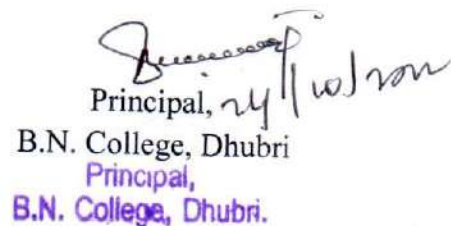 Principal,
B.N. College, Dhubri
Principal,
B.N. College, Dhubri.